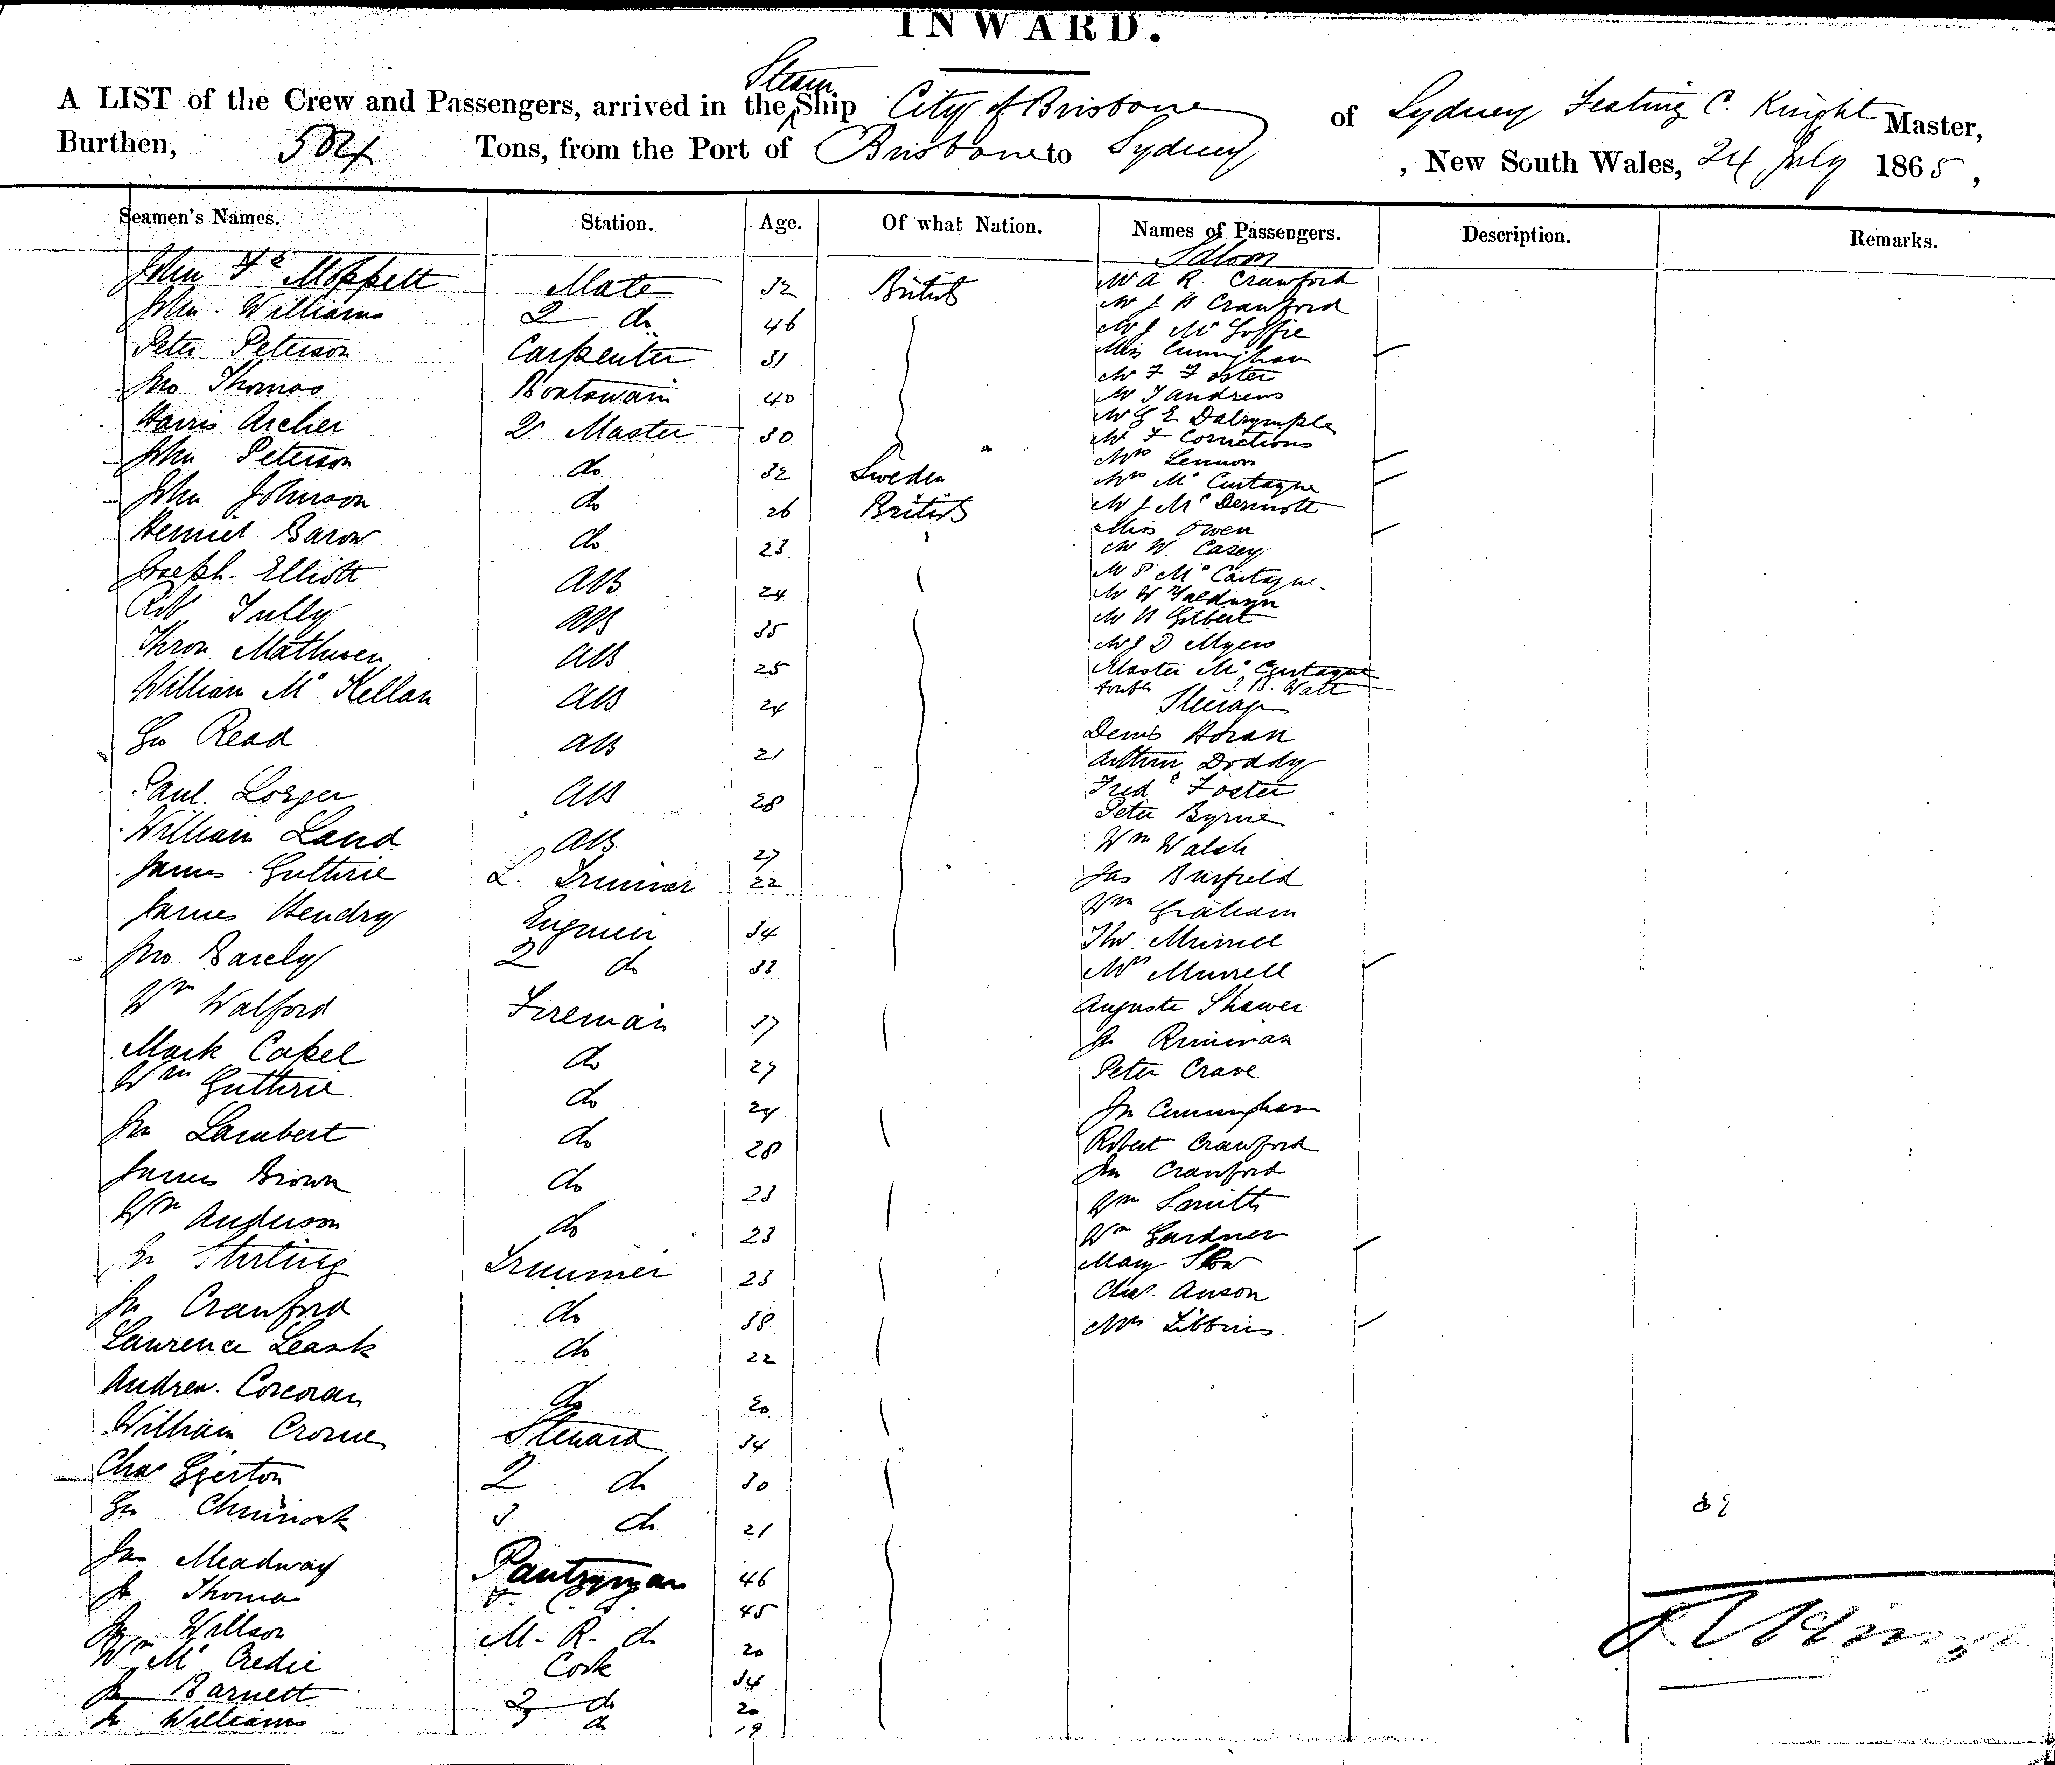 INWARD.
A LIST of the Crew and Passengers, arrived in the Steam Ship City of Brisbane of Sydney Festing C. Knight Master,
Burthen, 504 Tons, from the Port of Brisbane to Sydney, New South Wales, 24 July 1865,
Seamen's Names. Station. Age. Of what Nation. Names of Passengers. Description. Remarks.
John Moppett Mate 32 British
John Williams 2 do 46
Peter Peterson Carpenter 31
Jno Thomas Boatswain 40
Harris Archer 2r Master 30
John Peterson do 32 Sweden
John Johnson do 26 British
Baron do 23
Joseph Elliott AB 24
Robt Tully AB 35
Mathewsen AB 25
William Mc Kellan AB 24
Geo Read AB 21
Paul AB 28
William Land AB 27
James Guthrie L. Trimmer 22
James Hendry Engineer 34
Jno Barely 2 do 33
Wm Walford Fireman 37
Mark Capel do 27
Wm Guthrie do 24
Jno Lambert do 28
James Brown do 23
Wm Anderson do 23
Stirling Trimmer 23
Jno Crawford do 38
Lawrence Leask do 22
Andrew Corcoran do 20
William Crome Steward 34
Chas Egerton 2 do 30
Geo Chinnock 3 do 21
Jas Meadway Pantryman 46
Jno Thomas 45
Willson M. R. do 20
Wm Mc Credie Cook 34
Barnett 2 do 20
Williams 3 do 19
Saloon
Mr A R Crawford
Mr J H Crawford
Mr J Mc Goffie
Miss Cunningham
Mr F Foster
Mr T Andrews
Mr G E Dalrymple
Mr F
Mrs Lennon
Mrs Mc
Mr J Mc Dermott
Miss Owen
Mr W. Casey
Mr P Mc
Mr W
Mr H Gilbert
Mr J D Myers
Master Mc
Watt
Steerage
Denis Horan
Arthur Doddy
Fred Foster
Peter Byrne
Wm Walsh
Jas Burfield
Wm Graham
Thos
Mrs Murrell
Auguste
Jno
Peter Crave
Jno Cunningham
Robert Crawford
Jno Crawford
Wm Smith
Wm Gardner
Mary
Chas Anson
Mrs